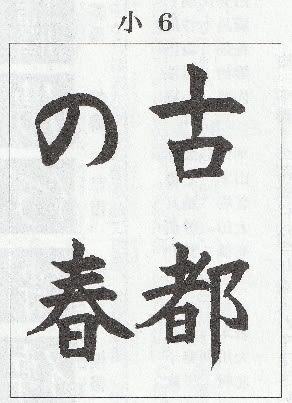 小6
古都
の春